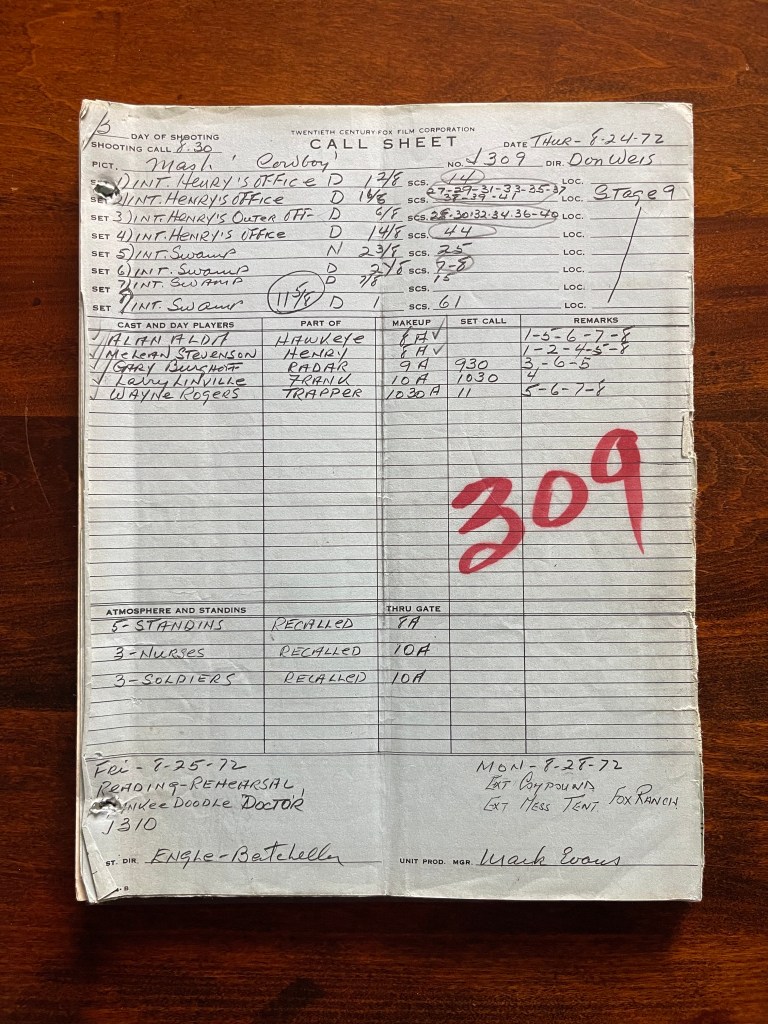 3 DAY OF SHOOTING
TWENTIETH CENTURY-FOX FILM CORPORATION
SHOOTING CALL 8.30
CALL SHEET
DATE THUR- 8-24-72
PICT. Mash 'Cowboy' NO. J309 DIR. Don Weis
SET 1) INT. Henry's Office D 1 2/8 SCS. 14 LOC.
SET 2) INT. Henry's Office D 1 6/8 SCS. 27-29-31-33-35-37 LOC. Stage 9
39-41
SET 3) INT. Henry's Outer Off- D 6/8 SCS. 28-30-32-34-36-40 LOC.
SET 4) INT. Henry's Office D 1 4/8 SCS. 44 LOC.
SET 5) INT. Swamp N 2 3/8 SCS. 25 LOC.
SET 6) INT. Swamp D SCS. 7-8 LOC.
SET 7) INT. Swamp D 7/8 SCS. 15 LOC.
SET 8) INT. Swamp 11 5/8 D 1 SCS. 61 LOC.
CAST AND DAY PLAYERS PART OF MAKEUP SET CALL REMARKS
ALAN ALDA HAWKEYE 8A 1-5-6-7-8
McLean Stevenson HENRY 8A 1-2-4-5-8
GARY Burghoff RADAR 9A 930 3-6-5
Larry LINVILLE FRANK 10A 1030 4
WAYNE ROGERS TRAPPER 1030A 11 5-6-7-8
309
ATMOSPHERE AND STANDINS THRU GATE
5-STANDINS RECALLED 8A
3-NURSES RECALLED 10A
3-SOLDIERS RECALLED 10A
FRI- 8-25-72
READING-REHEARSAL
YANKEE DOODLE DOCTOR
J310
MON- 8-28-72
EXT COMPOUND
EXT MESS TENT FOX RANCH
ST. DIR. ENGLE-Batcheller
UNIT PROD. MGR. Mark Evans